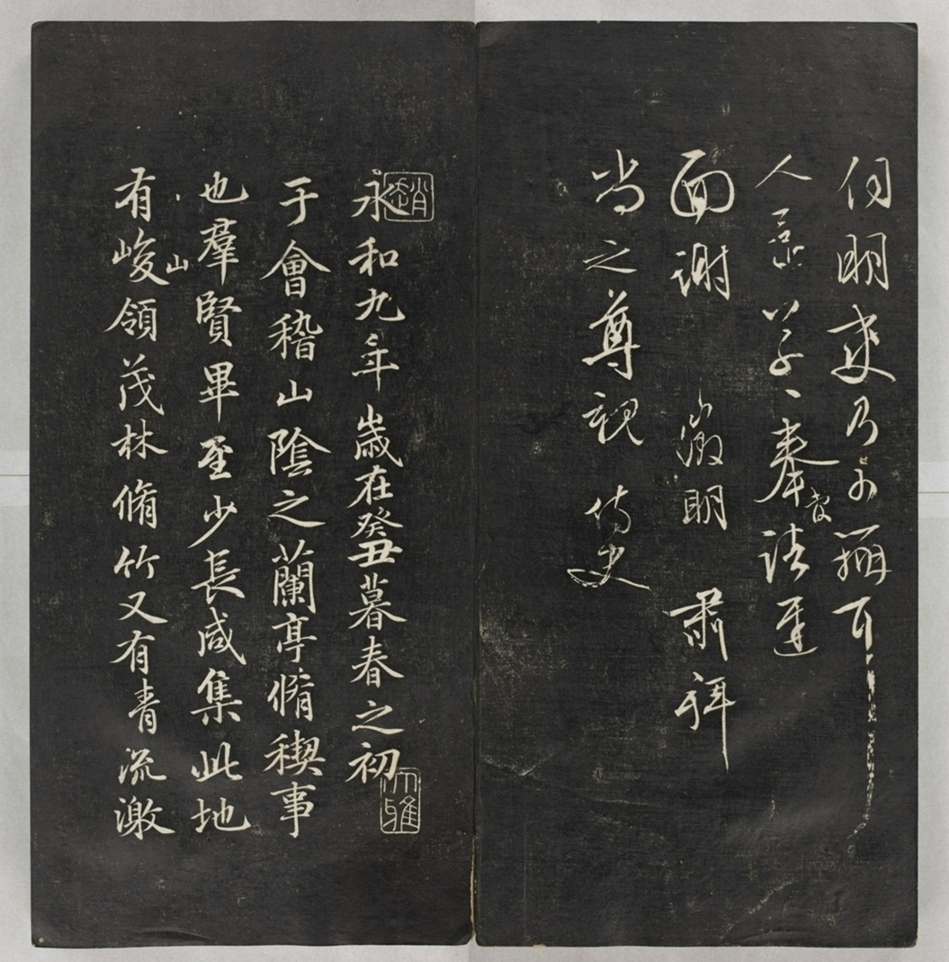 伺明更乃可辦耳
人還草草奉請遲
面謝 徵明 肅拜
尚之尊親 侍史
趙
永和九年歲在癸丑暮春之初
大雅
于會稽山陰之蘭亭脩稧事
也羣賢畢至少長咸集此地
山
有峻領茂林脩竹又有青流激